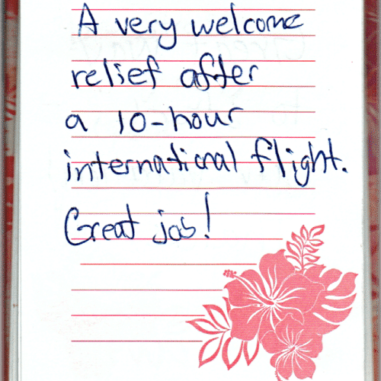 A very welcome
relief after
a 10-hour
international flight.
Great job!